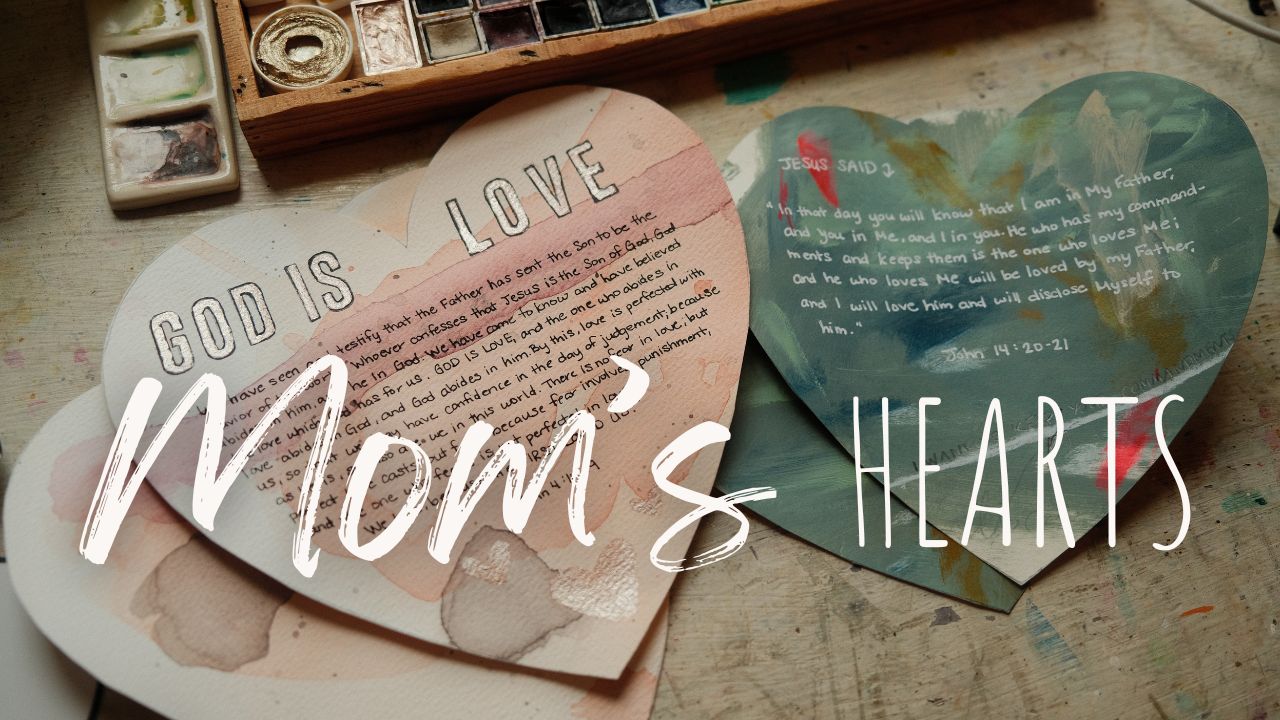 GOD IS LOVE
have seen testify that the Father has sent the Son to be the
Whoever confesses that Jesus is the Son of God, God
in him, he in God. We have come to know and have believed
love which has for us. GOD IS LOVE, and the one who abides in
love in God, and God abides in him. By this, love is perfected with
us, so that we may have confidence in the day of judgement; because
as is, so also we in this world. There is no fear in love, but
perfect casts because fear punishment,
and one perfected in
We
JESUS SAID
"In that day you will know that I am in My Father,
and you in Me, and I in you. He who has my command-
ments and keeps them is the one who loves Me;
and he who loves Me will be loved by my Father,
and I will love him and will disclose Myself to
him."
John 14:20-21
Mom's HEARTS